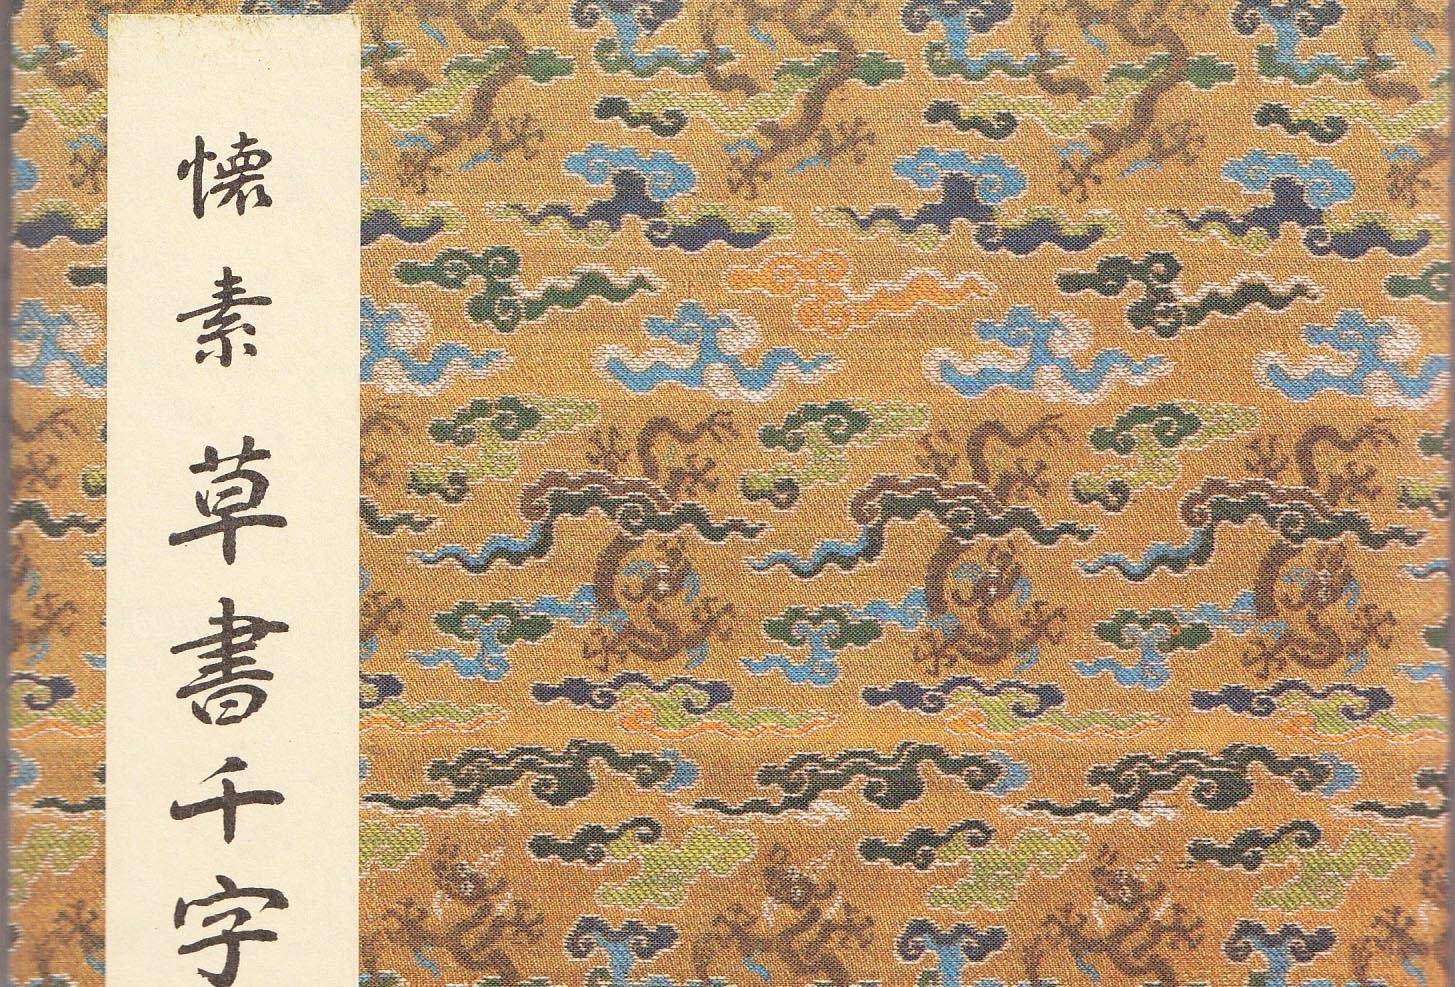 懷素草書千字